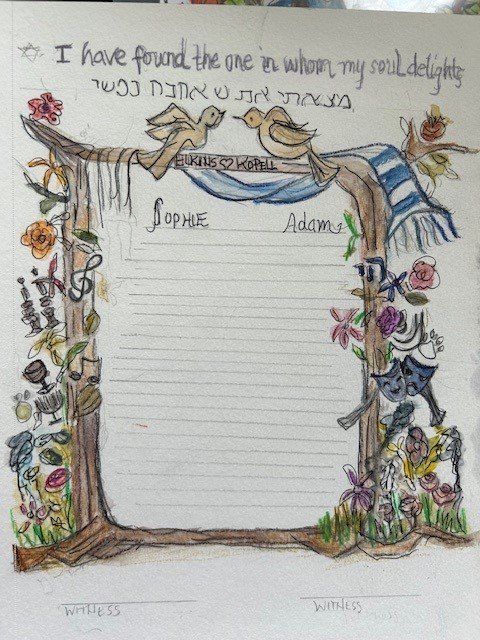 I have found the one in whom my soul delights
מצאתי את ש אהבה נפשי
ELKINS ♡ KOPELL
SOPHIE Adam
WITNESS WITNESS